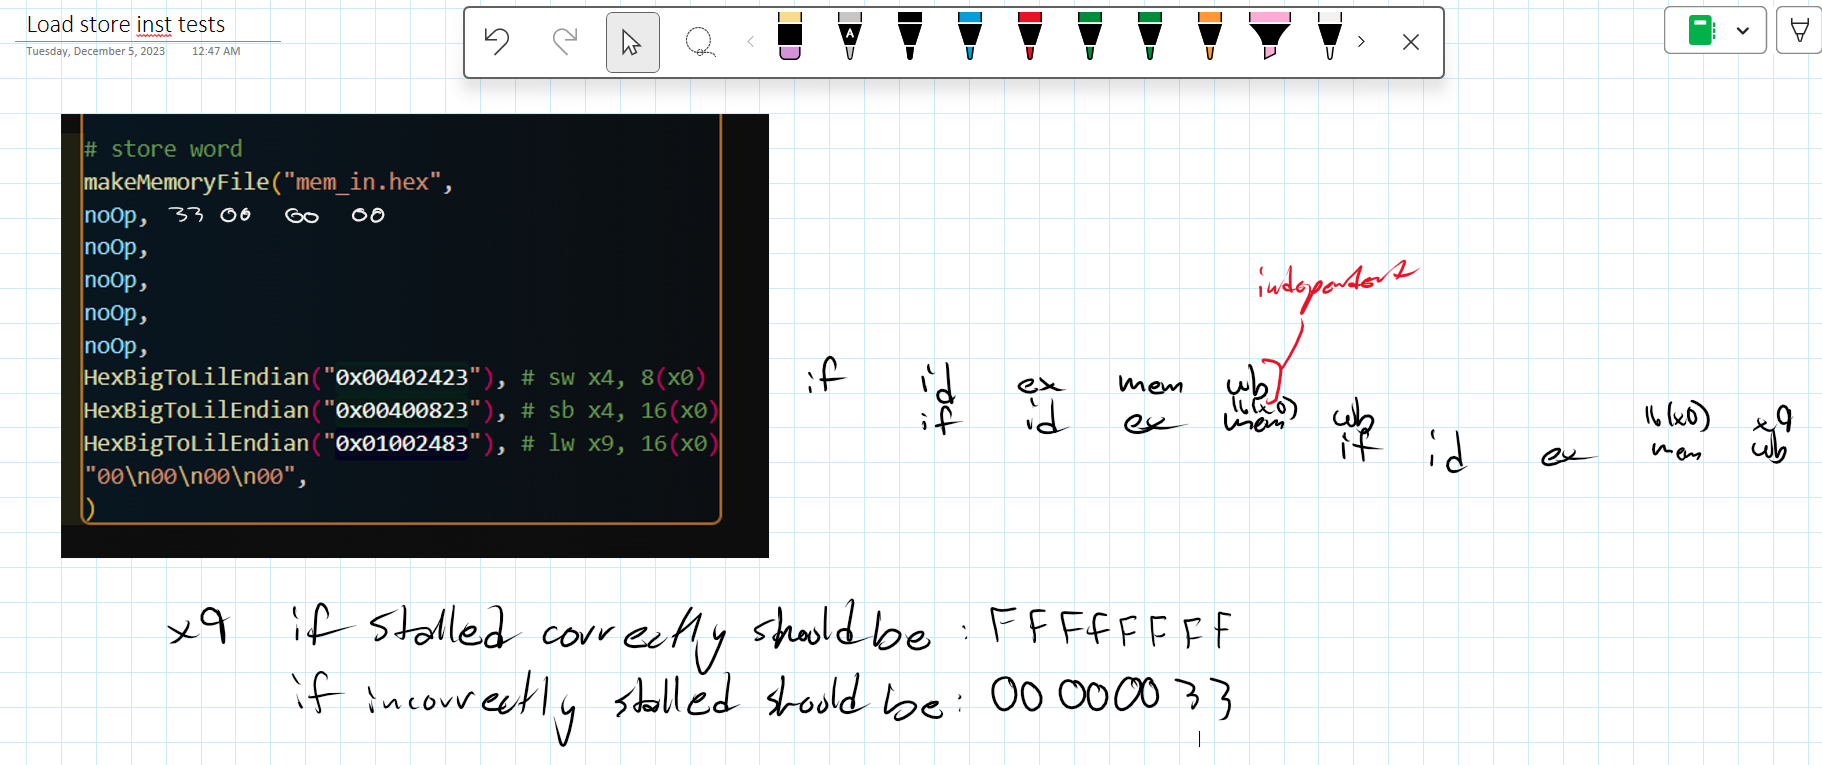 Load store inst tests
Tuesday, December 5, 2023 12:47 AM
A
# store word
makeMemoryFile("mem_in.hex",
noOp, 33 00 00 00
noOp,
noOp,
noOp,
noOp,
HexBigToLilEndian("0x00402423"), # sw x4, 8(x0)
HexBigToLilEndian("0x00400823"), # sb x4, 16(x0)
HexBigToLilEndian("0x01002483"), # lw x9, 16(x0)
"00\n00\n00\n00",
)
independent
if id ex mem wb
16(x0)
if id ex mem wb
16(x0) x9
if id ex mem wb
x9 if stalled correctly should be: FFFFFFFF
if incorrectly stalled should be: 00 00 00 33